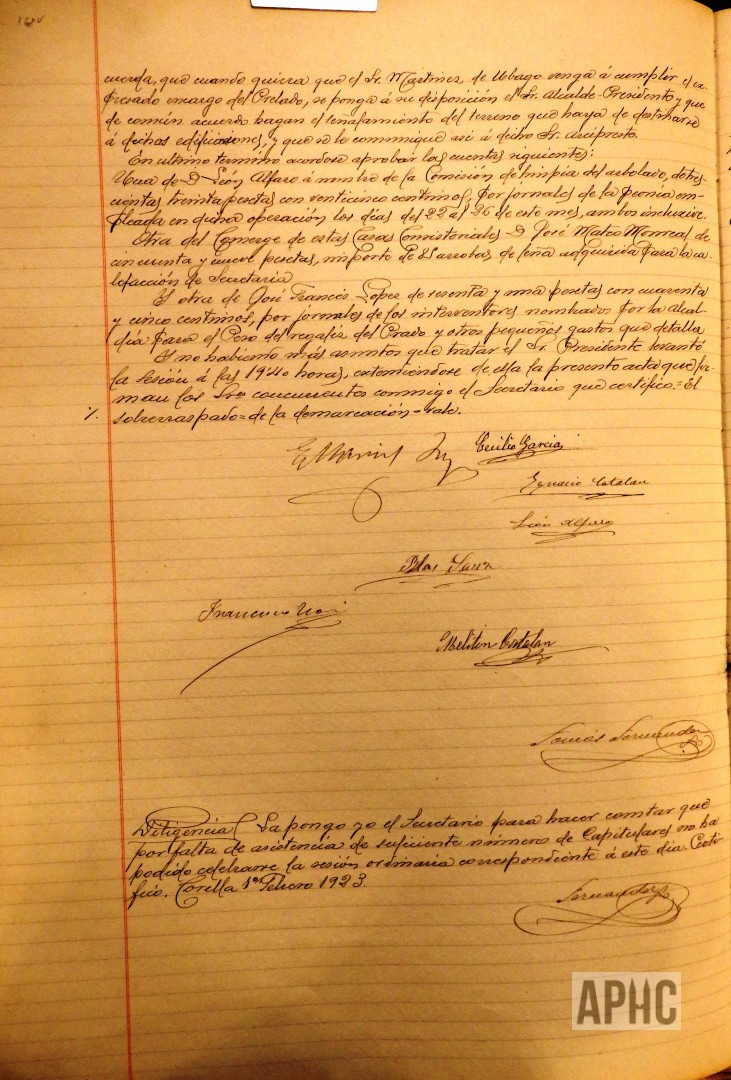 cuerda, que cuando quiera que el Sr. Martinez de Ubago venga á cumplir el ex-
presado encargo del Prelado, se ponga á su disposición el Sr. Alcalde-Presidente y que
de común acuerdo hagan el señalamiento del terreno que haya de destinarse
á dichas edificaciones, y que se le comunique asi á dicho Sr. Arcipreste.
En ultimo termino acordose aprobar las cuentas siguientes:
Una de D. León Alfaro á nombre de la Comisión de limpia del arbolado, de tres-
cientas treinta pesetas con venticinco centimos, por jornales de la peonia em-
pleada en dicha operación los dias del 22 al 26 de este mes, ambos inclusive.
Otra del Conserge de estas Casas Consistoriales D. José Mateo Monreal de
cincuenta y nueve pesetas, importe de arrobas de leña adquirida para la ca-
lefacción de Secretaria
Y otra de José Francés Lopez de sesenta y una pesetas con cuarenta
y cinco centimos, por jornales de los interventores nombrados por la alcal-
día para el Peso del regaliz del Prado y otros pequeños gastos que detalla
Y no habiendo más asuntos que tratar el Sr. Presidente levantó
la sesión á las 19'40 horas, extendiendose de ella la presente acta que fir-
man los Sres concurrentes conmigo el Secretario que certifico.=El
sobrerraspado= de la demarcación=vale.
Cecilio Garcia
Ignacio Catalan
León Alfaro
Blas
Francisco
Meliton Catalan
Tomás Fernandez
Diligencia La pongo yo el Secretario para hacer constar que
por falta de asistencia de suficiente número de Capitulares no ha
podido celebrarse la sesión ordinaria correspondiente á este dia. Certi-
fico. Corella 1º Febrero 1923.
Fernandez
APHC